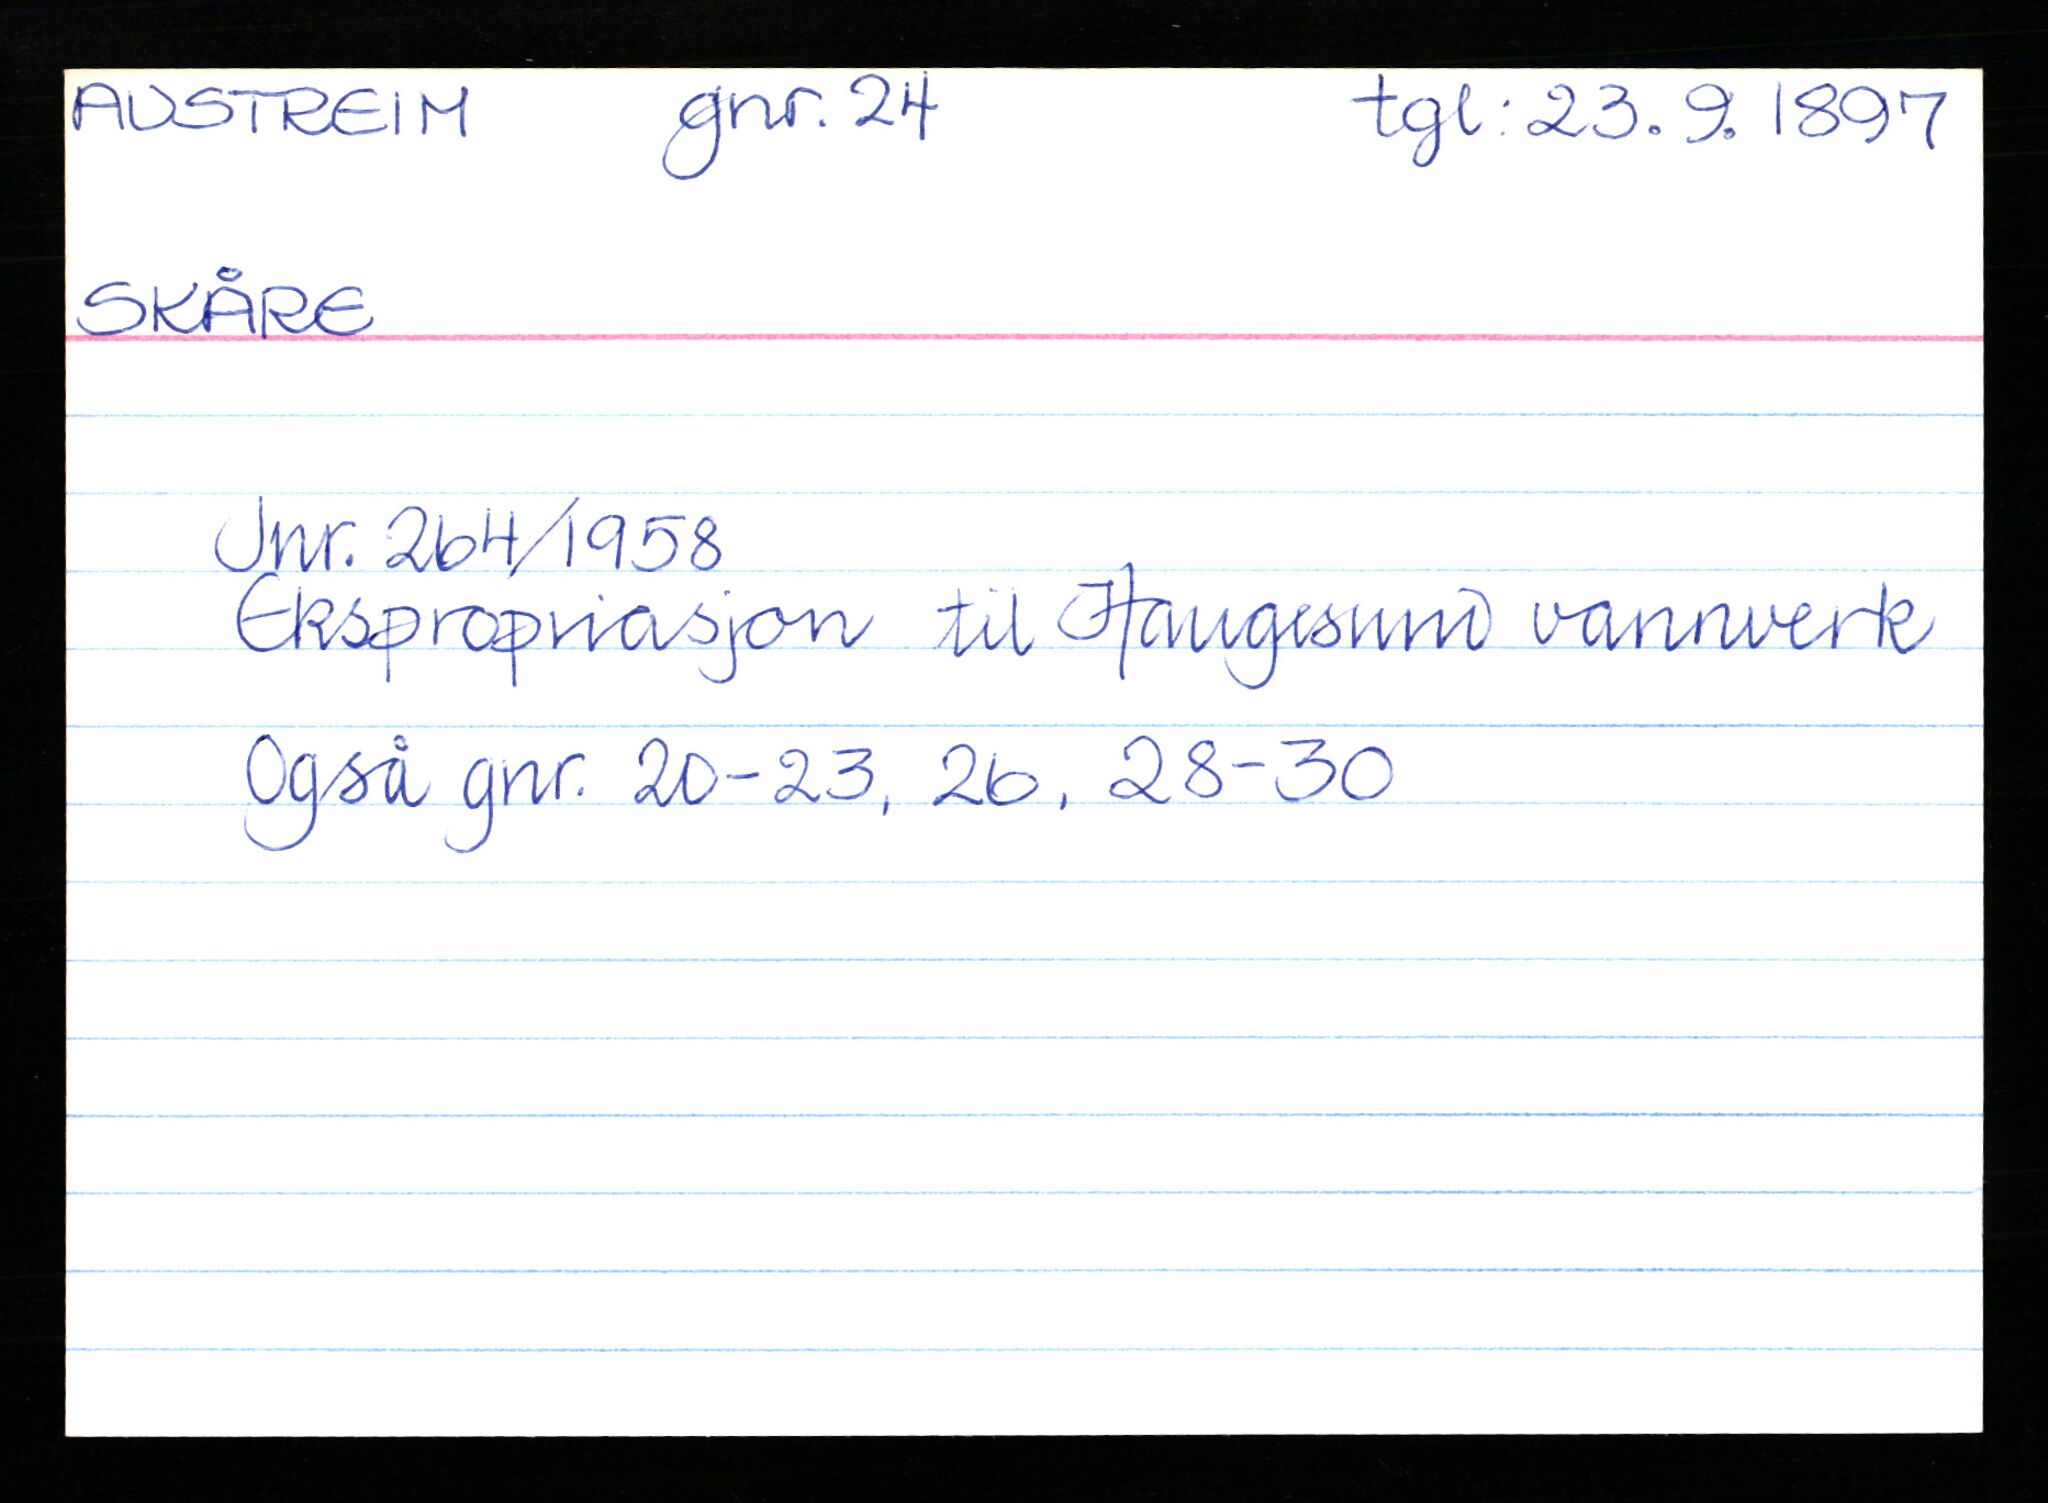 AUSTREIM gnr. 24 tgl: 23. 9. 1897
SKÅRE
Jnr. 264/1958
Ekspropriasjon til Haugesund vannverk
Også gnr. 20-23, 26, 28-30